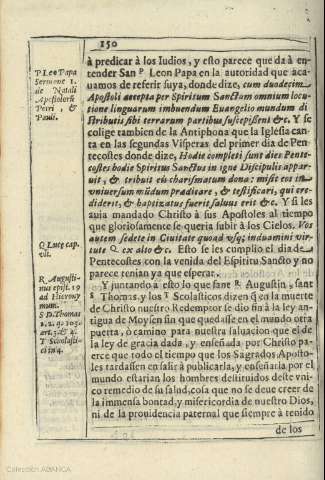 150
à predicar à los Iudios, y esto parece que da à en-
tender San P Leon Papa en la autoridad que aca-
uamos de referir suya, donde dize, cum duodecim
Apostoli accepta per Spiritum Sanctum omnium locu-
tione linguarum imbuendum Euangelio mundum di
stributis sibi terrarum partibus suscepissent &c. Y se
colige tambien de la Antiphona que la Iglesia can-
ta en las segundas Visperas del primer dia de Pen-
tecostes donde dize, Hodie completi sunt dies Pente-
costes hodie Spiritus Sanctus in igne Discipulis appar-
uit, & tribuit eis charismatum dona: misit eos in
vniuersum mūdum praedicare, & testificari, qui cre-
diderit, & baptizatus fuerit saluus erit &c. Y si les
auia mandado Christo à sus Apostoles al tiempo
que gloriosamente se queria subir à los Cielos. Vos
autem sedete in Ciuitate quoad vsq; induamini vir-
tute Q ex alto &c. Esto se les cumplio el dia de
Pentecostes con la venida del Espiritu Sancto y no
parece tenian ya que esperar.
Y juntando à esto lo que sant R Augustin, sant
S Thomas, y los T Scolasticos dizen q̄ en la muerte
de Christo nuestro Redemptor se dio fin à la ley an-
tigua de Moysen sin que quedasse en el mundo otra
puerta, ò camino para nuestra saluacion que el de
la ley de gracia dada, y enseñada por Christo pa-
rece que todo el tiempo que los Sagrados Aposto-
les tardassen en salir à publicarla, y enseñarla por el
mundo estarian los hombres destituidos deste vni-
co remedio de su salud, cosa que no se deue creer de
la immensa bondad, y misericordia de nuestro Dios,
ni de la prouidencia paternal que siempre à tenido
de los
P Leo Papa
Sermone 1.
de Natali
Apostolorū
Petri, &
Pauli.
Q Lucę cap.
vlt.
R Augusti-
nus epist. 19
ad Hierony
mum.
S D. Thomas
T Scolasti-
Colección ABANCA